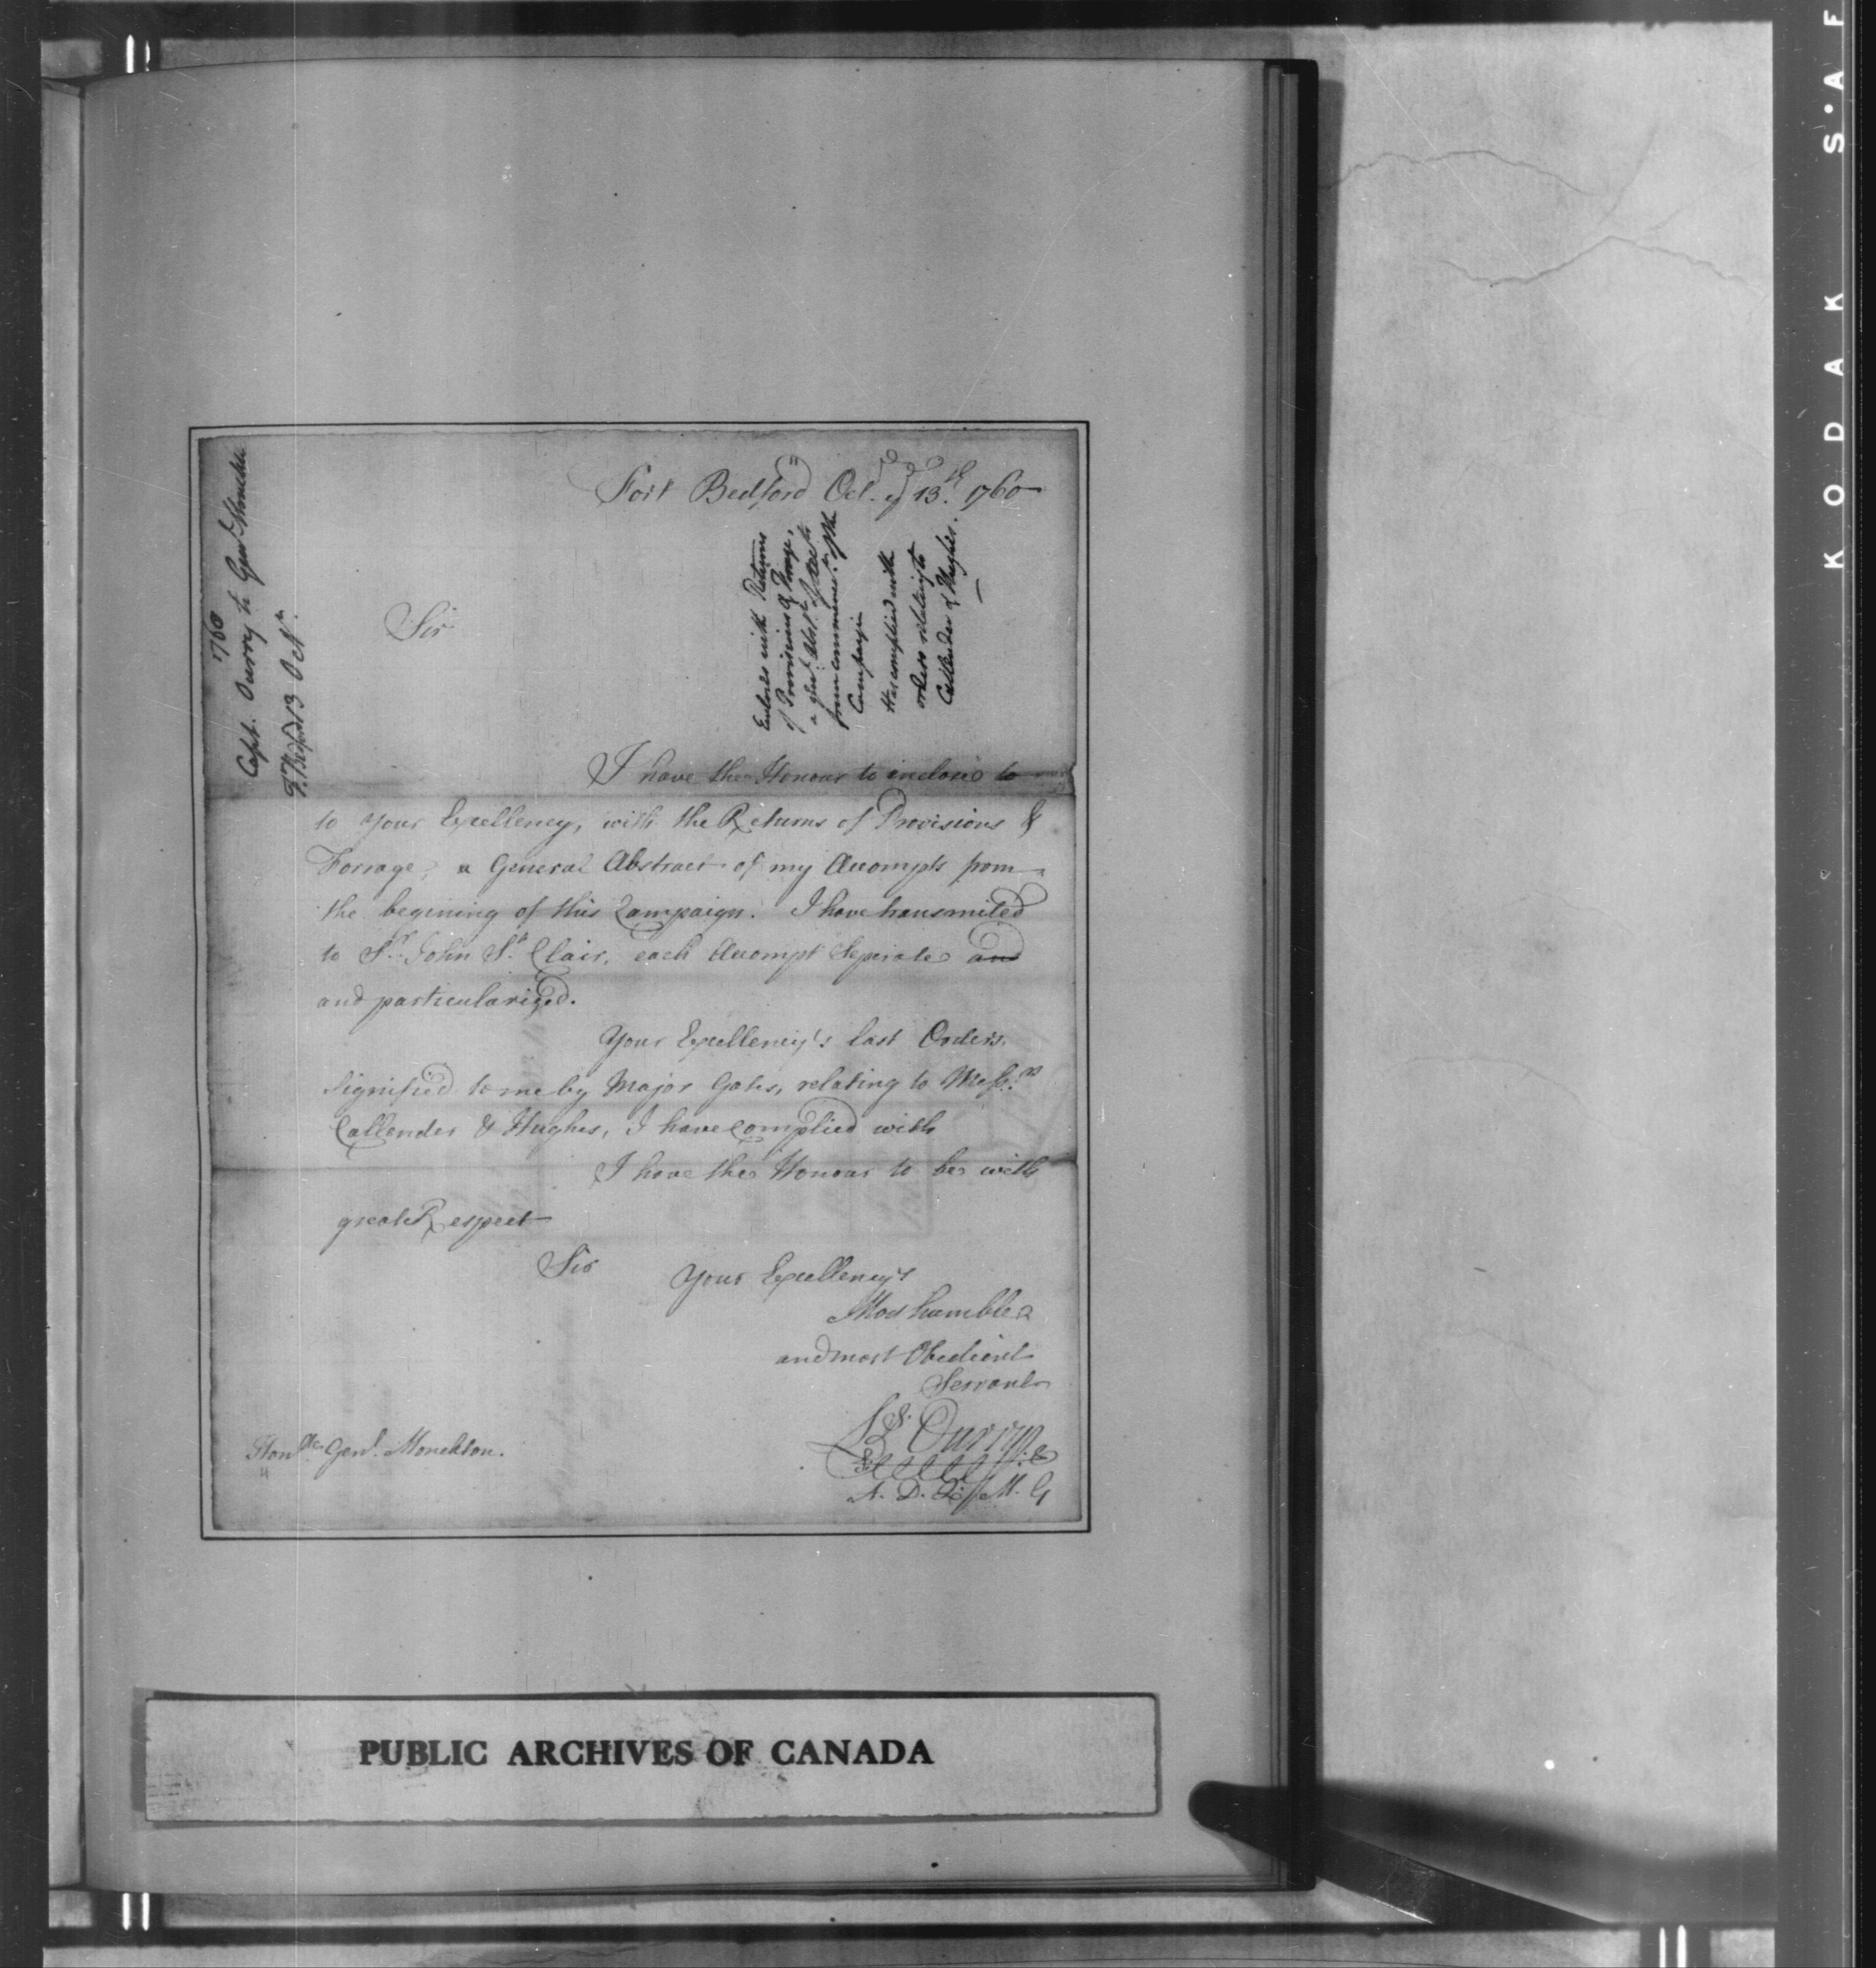 Fort Bedford Oct. ye 13th. 1760
1760
Capt. Ourry to Genl. Monckton
Ft. Bedford 13 Octr.
Encloses with Returns
of Provisions & Forage,
a Genl. Abst. of Accts
from commencemt. of the
Campaign
Has complied with
orders relating to
Callender & Hughes.
Sir
I have the Honour to inclose to
to Your Excellency, with the Returns of Provisions &
Forrage, a General Abstract of my Accompts from
the begining of this Campaign. I have transmited
to Sr. John St. Clair, each Accompt Seperate and
and particularized.
Your Excellency's last Orders,
signified to me by Major Gates, relating to Messrs.
Callender & Hughes, I have complied with
I have the Honour to be with
great Respect
Sir Your Excellency's
Most humble
and most Obedient
Servant
Ls. Ourry
A. D. Q. M. G
Honble. Genl. Monckton.
PUBLIC ARCHIVES OF CANADA
KODAK S.A.F